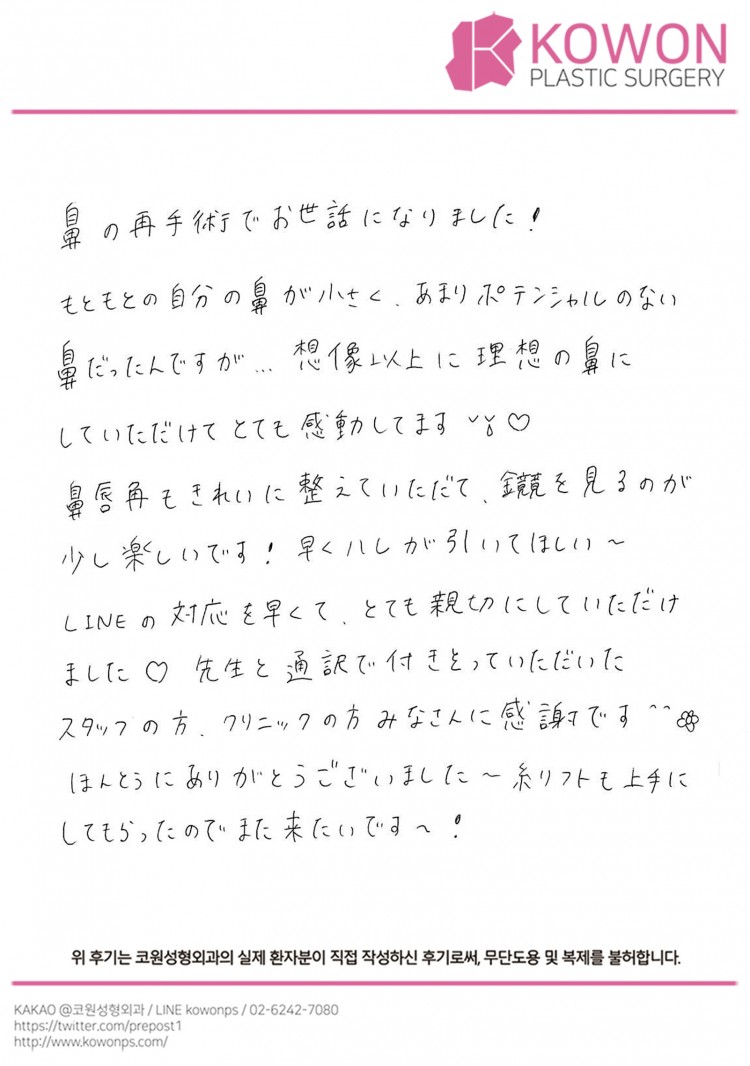 KOWON
PLASTIC SURGERY
鼻の再手術でお世話になりました!
もともとの自分の鼻が小さく、あまりポテンシャルのない
鼻だったんですが... 想像以上に理想の鼻に
していただけてとても感動してます ♡
鼻唇角もきれいに整えていただて、鏡を見るのが
少し楽しいです! 早くハレが引いてほしい〜
LINEの対応を早くて、とても親切にしていただけ
ました♡ 先生と通訳で付きとっていただいた
スタッフの方、クリニックの方みなさんに感謝です^^
ほんとうにありがとうございました〜糸リフトも上手に
してもらったのでまた来たいです〜!
위 후기는 코원성형외과의 실제 환자분이 직접 작성하신 후기로써, 무단도용 및 복제를 불허합니다.
KAKAO @코원성형외과 / LINE kowonps / 02-6242-7080
https://twitter.com/prepost1
http://www.kowonps.com/